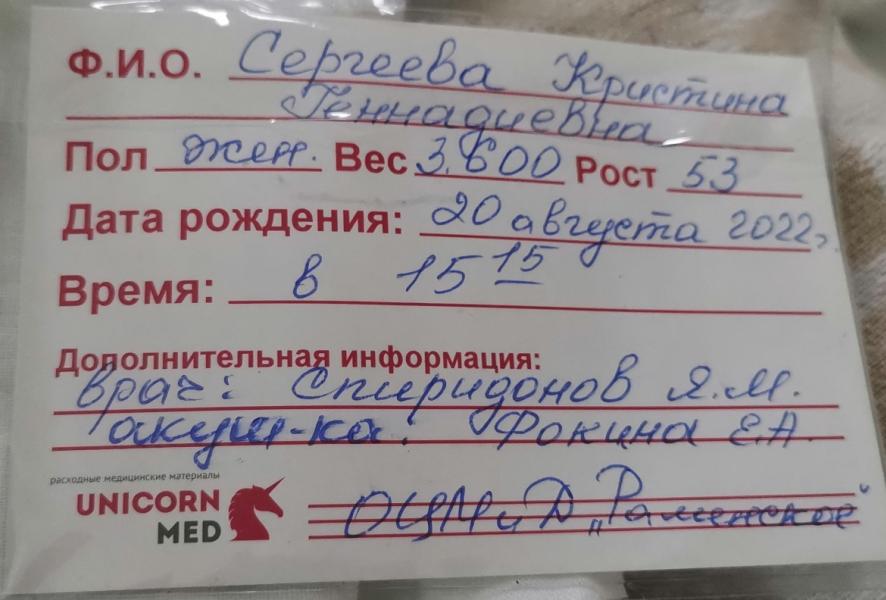 Ф.И.О. Сергеева Кристина
Геннадиевна
Пол жен. Вес 3.600 Рост 53
Дата рождения: 20 августа 2022г.
Время: в 15 15
Дополнительная информация:
врач: Спиридонов Я.М.
акуш-ка: Фокина Е.А.
расходные медицинские материалы
UNICORN
MED
ОЦМиД "Раменское"